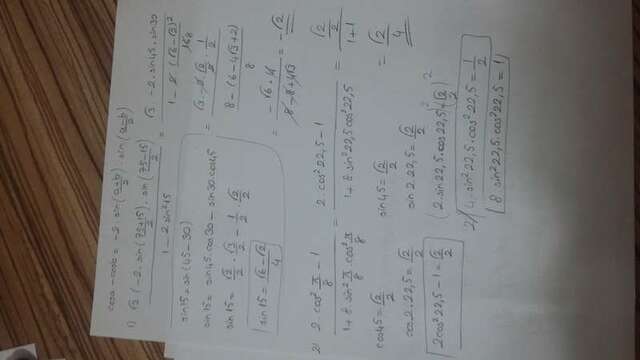 cosa - cosb = -2 . sin(a+b/2) . sin(a-b/2)
1) √3 (-2 . sin(75+15/2) . sin(75-15/2) / 1 - 2 sin²15 = √3 . -2 . sin45 . sin30 / 1 - 2 (√6-√2)²/16
sin15 = sin(45-30)
sin15 = sin45 . cos30 - sin30 cos45
sin15 = √2/2 . √3/2 - 1/2 √2/2
sin15 = √6-√2/4
8 - (6-4√3+2) / 8
= -√6 . 4 / = -√2
2) 2 cos² π/8 - 1 / 1 + 8 sin² π/8 cos² π/8 = 2 cos² 22,5 - 1 / 1 + 8 sin² 22,5 cos² 22,5 = √2/2 / 1+1 = √2/4
cos45 = √2/2
cos2.22,5 = √2/2
2cos² 22,5 - 1 = √2/2
sin45 = √2/2
sin2.22,5 = √2/2
(2.sin22,5.cos22,5)² = (√2/2)²
2/ 4.sin²22,5.cos²22,5 = 1/2
8 sin²22,5.cos²22,5 = 1